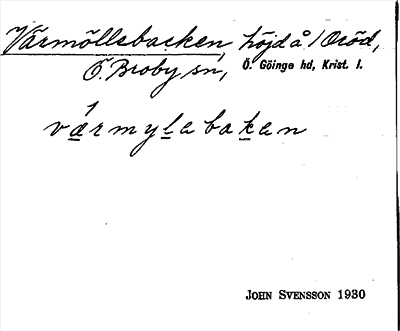 Värmöllsbacken, höjd å
Ö. Broby sn, Ö. Göinge hd, Krist. l.
värmylabakan
JOHN SVENSSON 1930